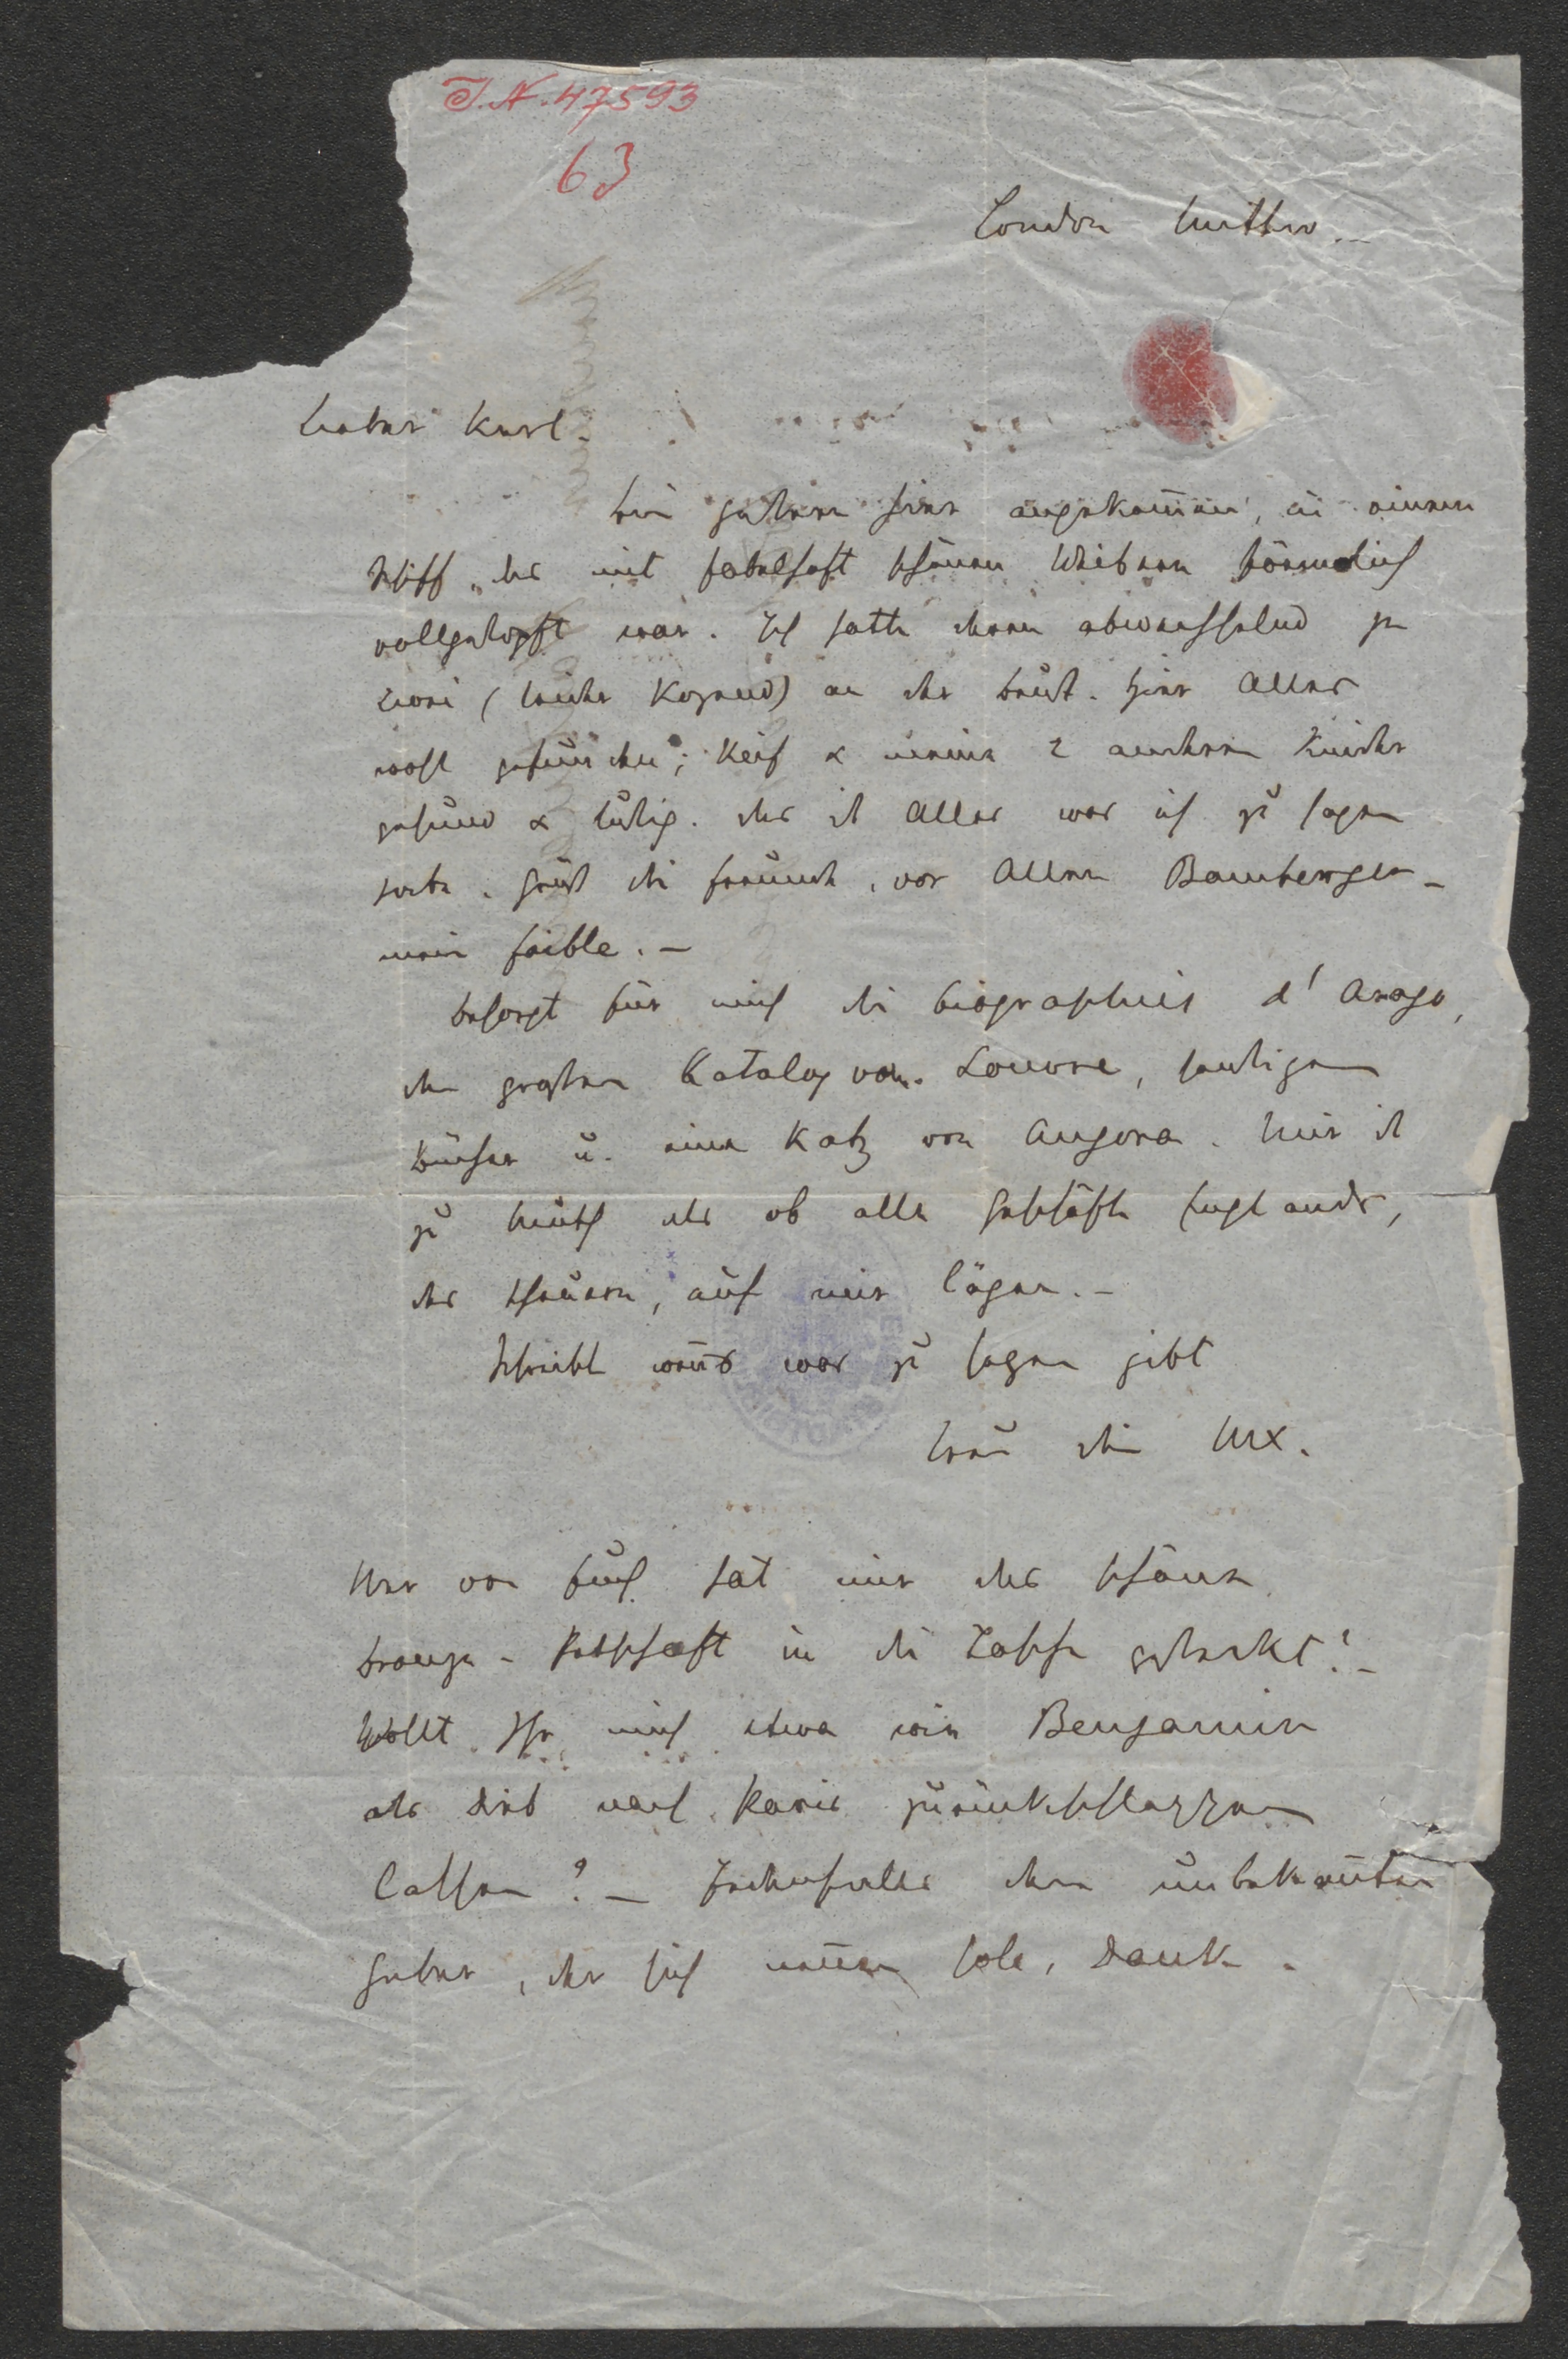 I.N. 47593
63
London Mittw.
Lieber Karl.
Bin gestern hier angekommen, in einem
Schiff, das mit fabelhaft schönen Weibern förmlich
vollgestopft war. Ich hatte deren abwechselnd zu
zwei (beide kozend) an der Brust. Hier Alles
wohl gefunden; Weib & meine 2 anderen Kinder
gesund & lustig. Das ist Alles was ich zu sagen
habe. Grüßt die Freunde, vor Allen Bamberger –
mein faible. –
Besorgt für mich die biographies d'Arago,
den großen Katalog vom Louvre,
Bücher u. eine Katz von Angora. Mir ist
zu Muth als ob alle Geschäfte Englands,
des theuern, auf mir lägen. –
Schreibt wenns was zu sagen gibt
Treu Dein MX.
Wer von Euch hat mir das schöne
Bronze-Petschaft in die Tasche gesteckt? –
Wollt Ihr mich etwa wie Benjamin
als Dieb nach Paris zurückschleppen
lassen? – Jedenfalls dem unbekannten
Geber, der sich nennen solle, Dank.